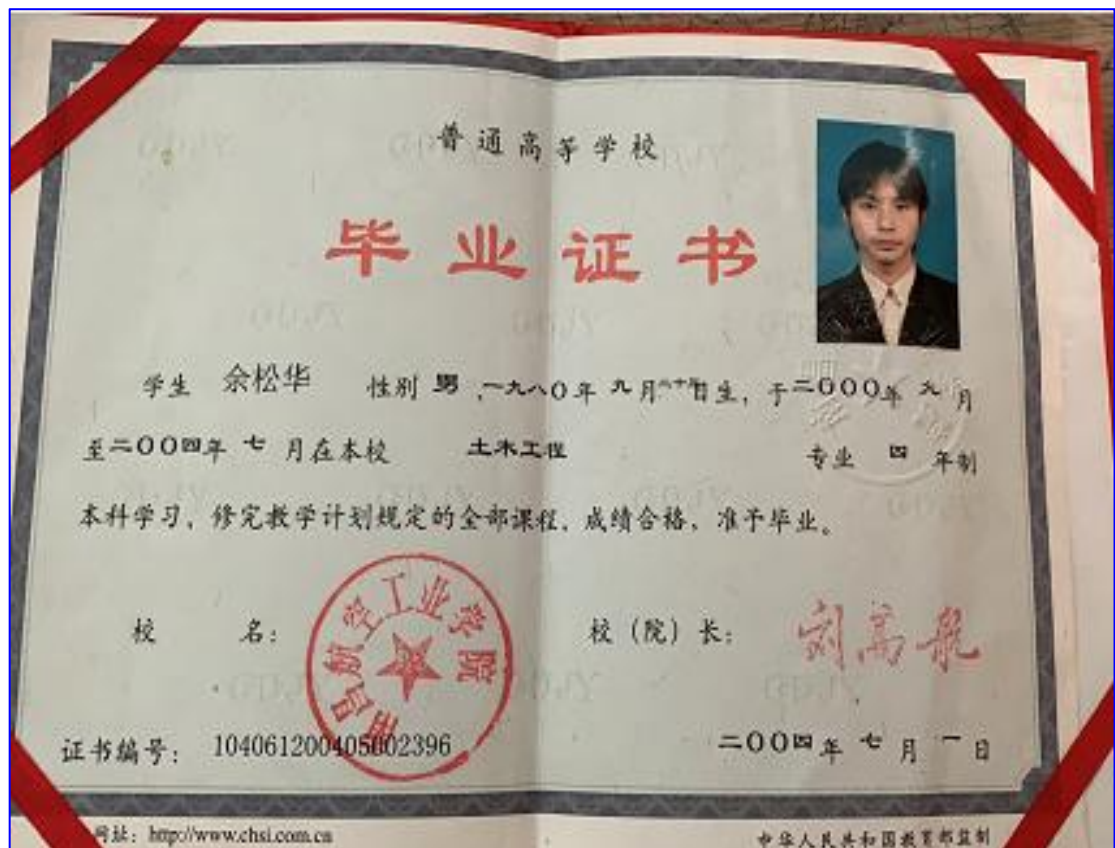 普通高等学校
毕业证书
学生 余松华 性别 男，一九八〇年 九月 日生，于二〇〇〇年 九月
至二〇〇四年 七 月在本校 土木工程 专业 四 年制
本科学习，修完教学计划规定的全部课程，成绩合格，准予毕业。
校 名：
南昌航空工业学院
校（院）长：
刘高航
证书编号： 104061200405002396
二〇〇四年 七 月 一 日
网址：http://www.chsi.com.cn
中华人民共和国教育部监制